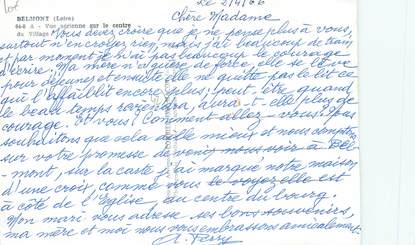 Le 2/4/66
BELMONT (Loire)
648 A - Vue aérienne sur le centre
du Village
Chère Madame
Vous devez croire que je ne pense plus à vous,
surtout n'en croyez rien, mais j'ai beaucoup de train
et par moment je n'ai pas beaucoup le courage
d'écrire. Ma mère n'a guère de force, elle se lève
pour déjeuner et ensuite elle ne quitte pas le lit ce
qui l'affaiblit encore plus, peut-être quand
le beau temps reviendra, aura-t-elle plus de
courage. Et vous! Comment allez-vous? Nous
souhaitons que cela aille mieux et nous comptons
sur votre promesse de venir nous voir à Bel-
mont, sur la carte j'ai marqué notre maison
d'une croix, comme vous le voyez elle est
à côté de l'Eglise, au centre du bourg.
Mon mari vous adresse ses bons souvenirs,
ma mère et moi nous vous embrassons amicalement.